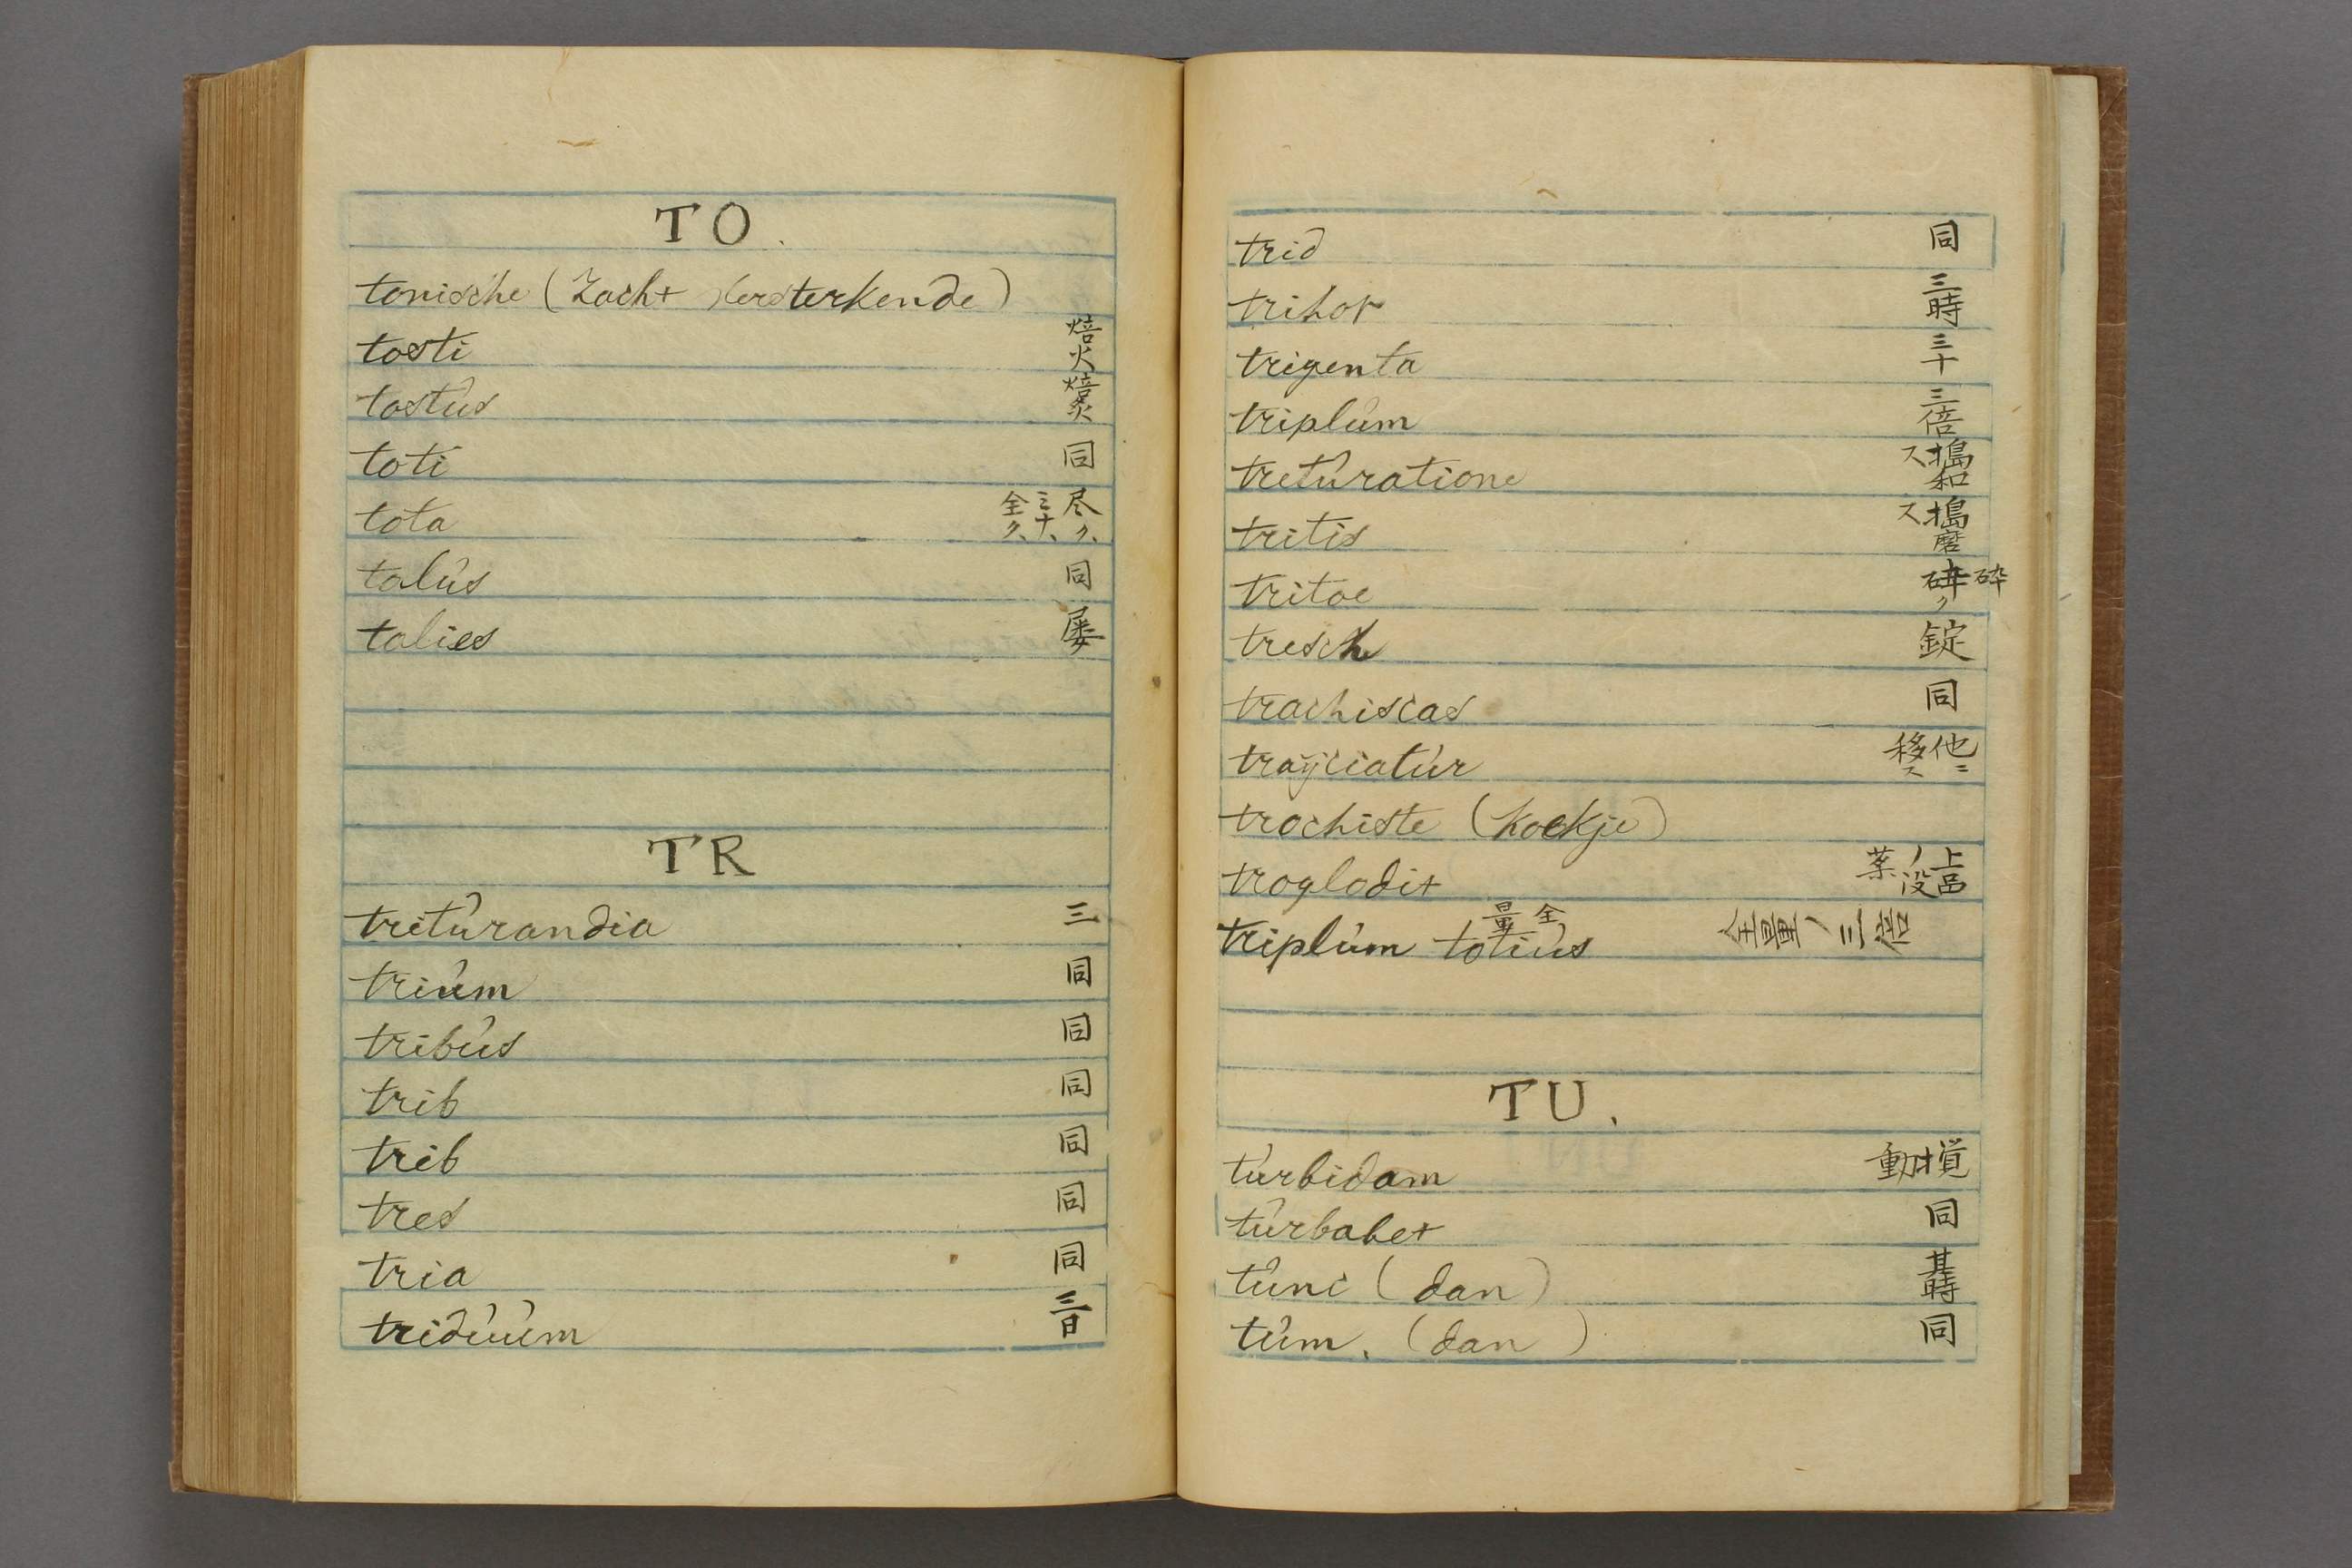 TO.
tonische (Zacht Versterkende)
tosti 焙火
tostús 焙炙
toti 同
tota 尽ク、ミナ、全ク、
talús 同
talies 屡
TR
tritúrandia 三
triúm 同
tribús 同
trib 同
trib 同
tres 同
tria 同
tridúúm 三日
trid 同
trihor 三時
trigenta 三十
triplúm 三倍
tretúratione 搗和ス
tritis 搗磨ス
tritoe 碎ク 砕
tresch 錠
trachiscas 同
traÿciatúr 他ニ移ス
trochiste (koekje)
troglodit 上品ノ没薬
triplúm totiús 全量 全量ノ三倍
TU.
túrbidam 攪動
túrbabet 同
túnc (dan) 其時
túm. (dan) 同